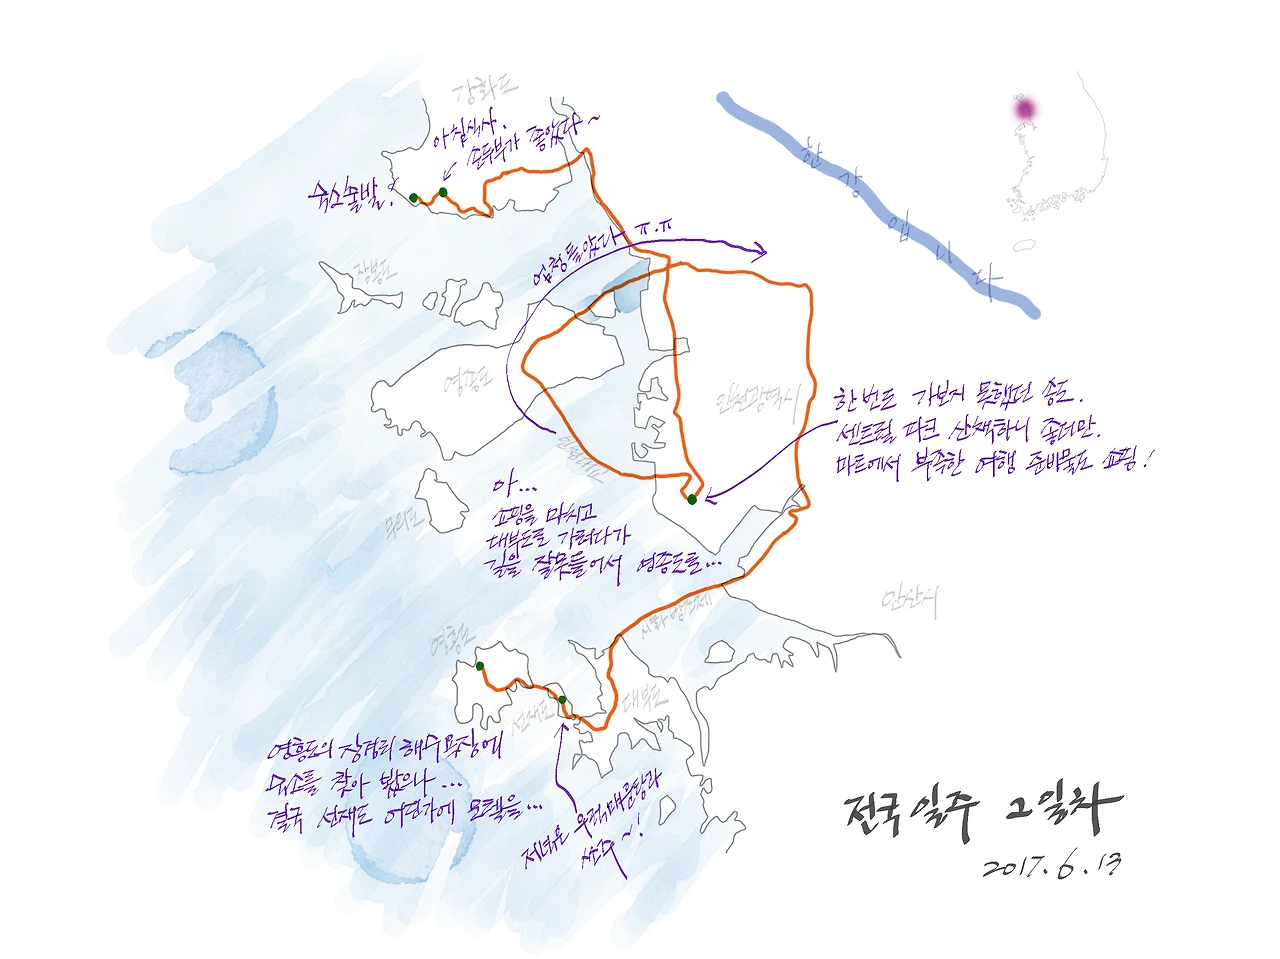 강화도
아침식사.
순두부가 좋았다~
숙소출발!
한강입니다
엄청돌았다 ㅠ.ㅠ
장봉도
영종도
인천광역시
인천대교
무의도
한번도 가보지 못했던 송도.
센트럴 파크 산책하니 좋더만.
마트에서 부족한 여행 준비물도 쇼핑!
아...
쇼핑을 마치고
대부도로 가려다가
길을 잘못들어서 영종도로...
안산시
시화방조제
영흥도
선재도
대부도
영흥도의 장경리 해수욕장에
숙소를 찾아 봤으나...
결국 선재도 어딘가에 모텔을...
저녁은
~!
전국일주 2일차
2017.6.13